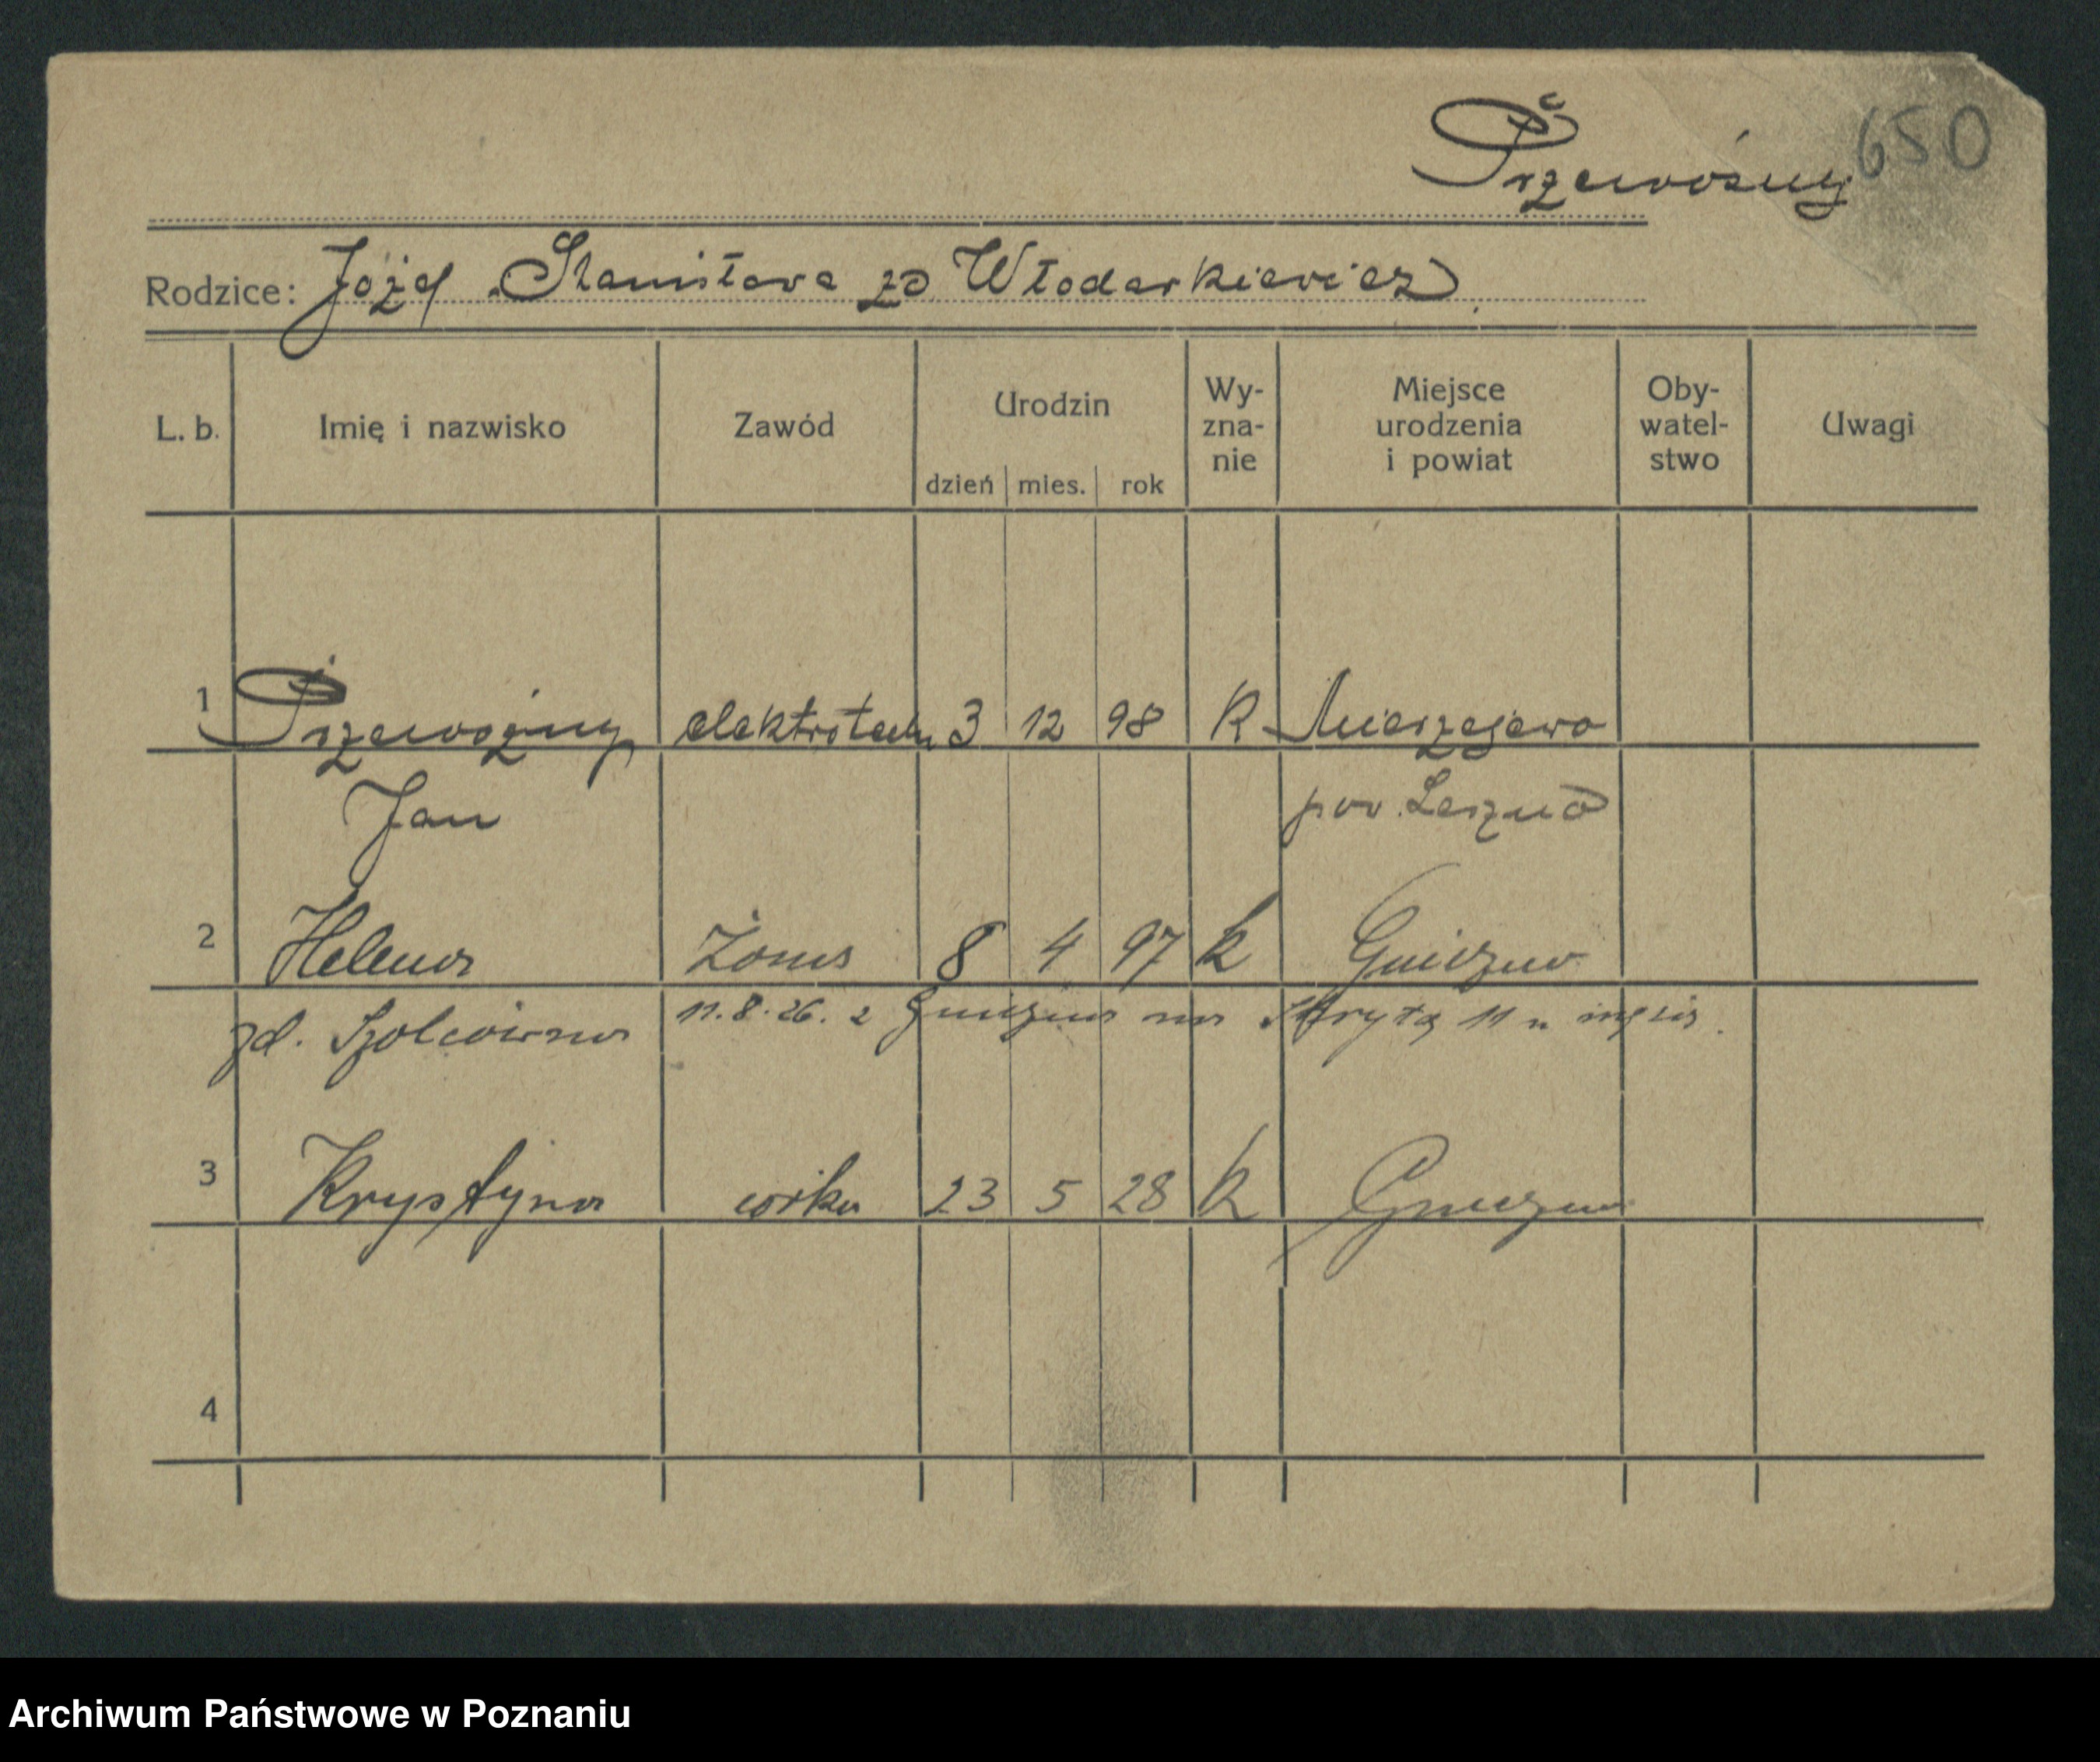 650
Przewoźny
Rodzice: Józef Stanisława zd Włodarkiewicz
L. b. Imię i nazwisko Zawód Urodzin dzień mies. rok Wy-zna-nie Miejsce urodzenia i powiat Oby-watel-stwo Uwagi
1 Przewoźny elektrotechn 3 12 98 K Mierzejewo
Jan pow. Leszno
2 Helena Żona 8 4 97 k Gniezno
zd. Szolcówna 11.8.26. z Gniezna na Skrytą 11 u męża.
3 Krystyna córka 23 5 28 k Gniezno
4
Archiwum Państwowe w Poznaniu